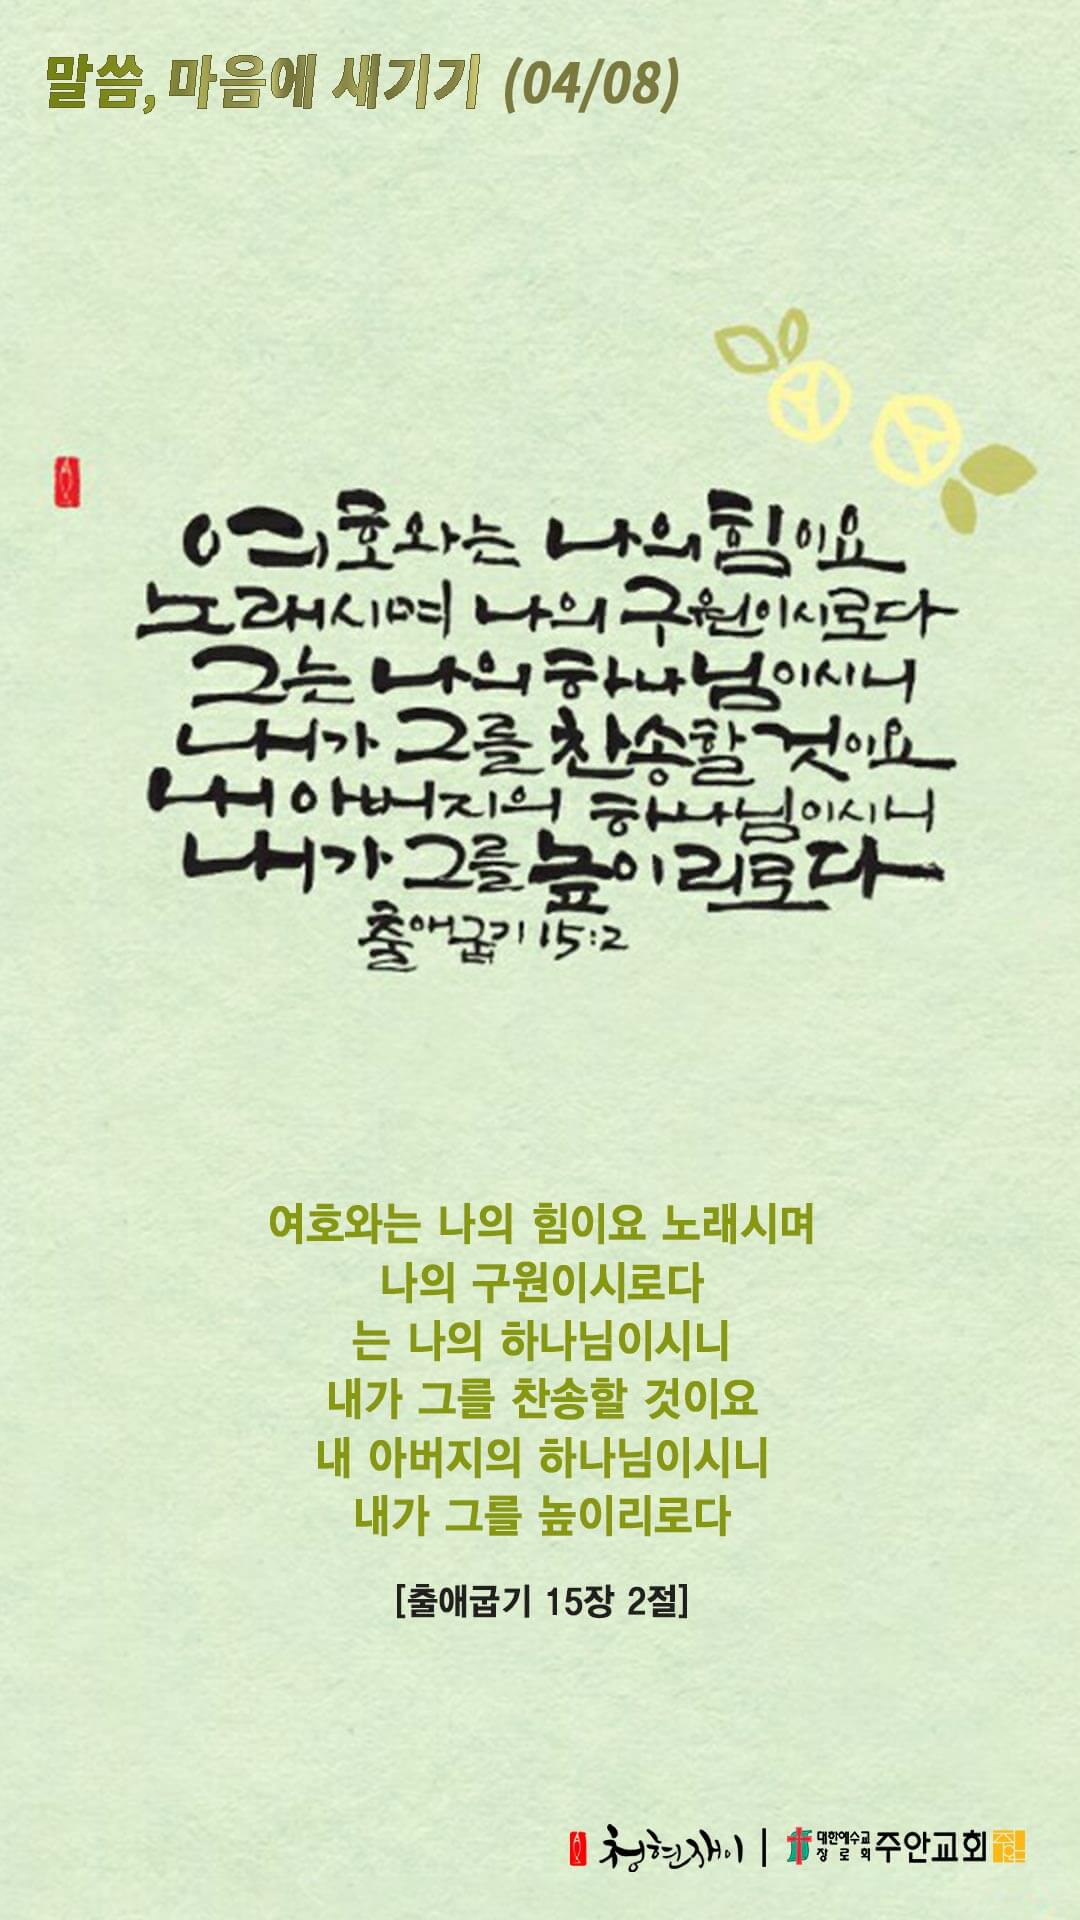 말씀, 마음에 새기기 (04/08)
여호와는 나의 힘이요
노래시며 나의 구원이시로다
그는 나의 하나님이시니
내가 그를 찬송할 것이요
내 아버지의 하나님이시니
내가 그를 높이리로다
출애굽기 15:2
여호와는 나의 힘이요 노래시며
나의 구원이시로다
는 나의 하나님이시니
내가 그를 찬송할 것이요
내 아버지의 하나님이시니
내가 그를 높이리로다
[출애굽기 15장 2절]
청현재이 | 대한예수교 장로회 주안교회